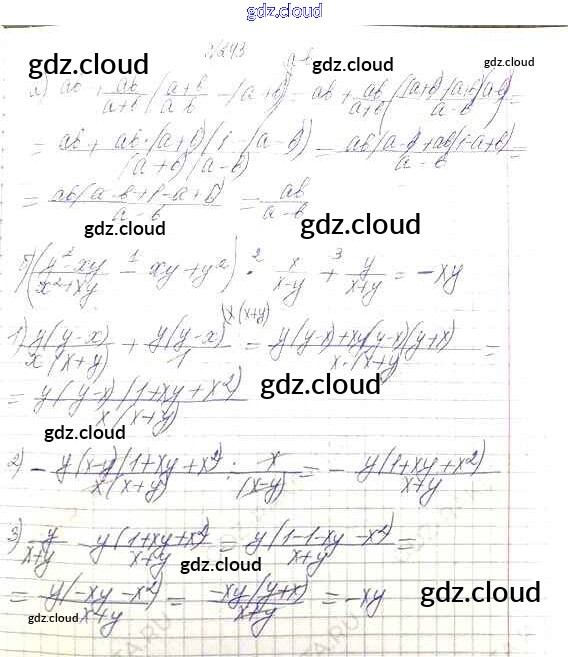 gdz.cloud
№ 243
gdz.cloud gdz.cloud gdz.cloud
а) ab + ab/(a+b) · ((a+b)/(a-b) - (a+b)) = ab + ab/(a+b) · (((a+b) - (a+b)(a-b))/(a-b)) =
= ab + ab·(a+b)(1-(a-b))/((a+b)(a-b)) = (ab(a-b)+ab(1-a+b))/(a-b) =
= ab(a-b+1-a+b)/(a-b) = ab/(a-b)
gdz.cloud gdz.cloud
б) ((y²-xy)/(x²+xy) - xy + y²) · x/(x-y) + y/(x+y) = -xy
gdz.cloud gdz.cloud
1) y(y-x)/(x(x+y)) + y(y-x)/1 = (y(y-x)+xy(y-x)(y+x))/(x·(x+y)) =
= y(y-x)(1+xy+x²)/(x(x+y))
gdz.cloud
gdz.cloud
2) - y(x-y)(1+xy+x²)/(x(x+y)) · x/(x-y) = - y(1+xy+x²)/(x+y)
gdz.cloud
3) y/(x+y) - y(1+xy+x²)/(x+y) = y(1-1-xy-x²)/(x+y) =
gdz.cloud
= y(-xy-x²)/(x+y) = -xy(y+x)/(x+y) = -xy
gdz.cloud gdz.cloud